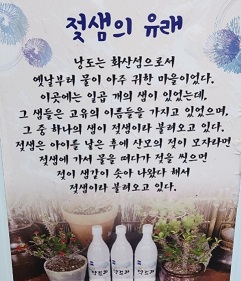 젖샘의 유래
낭도는 화산섬으로서
옛날부터 물이 아주 귀한 마을이었다.
이곳에는 일곱 개의 샘이 있었는데,
그 샘들은 고유의 이름들을 가지고 있었으며,
그 중 하나의 샘이 젖샘이라 불려오고 있다.
젖샘은 아이를 낳은 후에 산모의 젖이 모자라면
젖샘에 가서 물을 떠다가 젖을 씻으면
젖이 샘같이 솟아 나왔다 해서
젖샘이라 불려오고 있다.